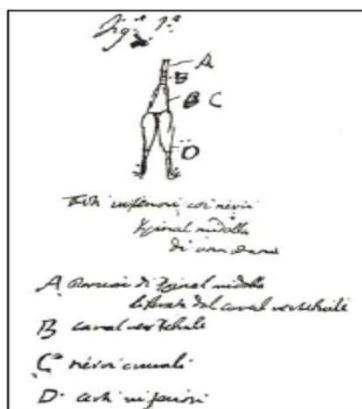 Fig.ª 1.ª
A
B
B C
D
Arti inferiori coi nervi
Spinal midolla
di una Rana
A Porzioni di Spinal midolla
del canal vertebrale
B canal vertebrale
Cª nervi crurali
D arti inferiori